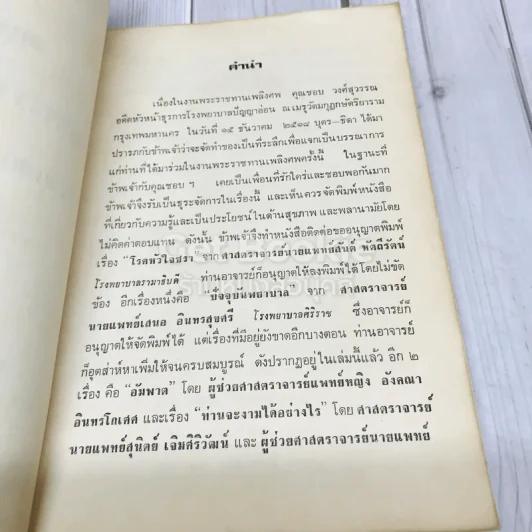 คำนำ
เนื่องในงานพระราชทานเพลิงศพ คุณชอบ วงศ์สุวรรณ
อดีตหัวหน้าธุรการโรงพยาบาลปัญญาอ่อน ณ เมรุวัดมกุฏกษัตริยาราม
กรุงเทพมหานคร ในวันที่ ๑๕ ธันวาคม ๒๕๑๘ บุตร–ธิดา ได้มา
ปรารภกับข้าพเจ้าว่าจะจัดทำของเป็นที่ระลึกเพื่อแจกเป็นบรรณาการ
แก่ท่านที่ได้มาร่วมในงานพระราชทานเพลิงศพครั้งนี้ ในฐานะที่
ข้าพเจ้ากับคุณชอบ ฯ เคยเป็นเพื่อนที่รักใคร่และชอบพอกันมาก
ข้าพเจ้าจึงรับเป็นธุระจัดการในเรื่องนี้ และเห็นควรจัดพิมพ์หนังสือ
ที่เกี่ยวกับความรู้และเป็นประโยชน์ในด้านสุขภาพ และพลานามัยโดย
ไม่คิดค่าตอบแทน ดังนั้น ข้าพเจ้าจึงทำหนังสือติดต่อขออนุญาตพิมพ์
เรื่อง “โรคหัวใจชรา” จาก ศาสตราจารย์นายแพทย์สันต์ หัตถีรัตน์
โรงพยาบาลรามาธิบดี ท่านอาจารย์ก็อนุญาตให้ลงพิมพ์ได้โดยไม่ขัด
ข้อง อีกเรื่องหนึ่งคือ “ปัจจุบันพยาบาล” จาก ศาสตราจารย์
นายแพทย์เสนอ อินทรสุขศรี โรงพยาบาลศิริราช ซึ่งอาจารย์ก็
อนุญาตให้จัดพิมพ์ได้ แต่เรื่องที่มีอยู่ยังขาดอีกบางตอน ท่านอาจารย์
ก็อุตส่าห์หาเพิ่มให้จนครบสมบูรณ์ ดังปรากฏอยู่ในเล่มนี้แล้ว อีก ๒
เรื่อง คือ “อัมพาต” โดย ผู้ช่วยศาสตราจารย์แพทย์หญิง อังคณา
อินทรโกเศศ และเรื่อง “ท่านจะงามได้อย่างไร” โดย ศาสตราจารย์
นายแพทย์สุนิตย์ เจิมศิริวัฒน์ และ ผู้ช่วยศาสตราจารย์นายแพทย์